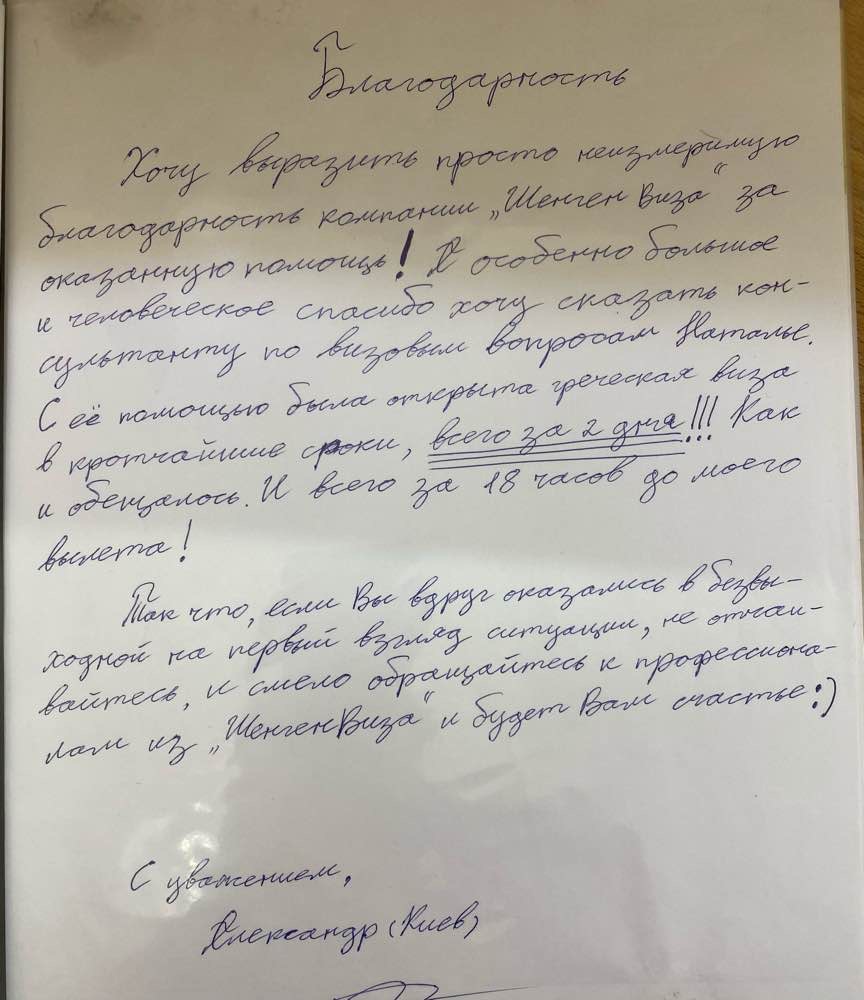 Благодарность
Хочу выразить просто неизмеримую
благодарность компании „Шенген Виза“ за
оказанную помощь! А особенно большое
и человеческое спасибо хочу сказать кон-
сультанту по визовым вопросам Наталье.
С её помощью была открыта греческая виза
в кротчайшие сроки, всего за 2 дня!!! Как
и обещалось. И всего за 18 часов до моего
вылета!
Так что, если Вы вдруг оказались в безвы-
ходной на первый взгляд ситуации, не отчаи-
вайтесь, и смело обращайтесь к профессиона-
лам из „ШенгенВиза“ и будет Вам счастье:)
С уважением,
Александр (Киев)